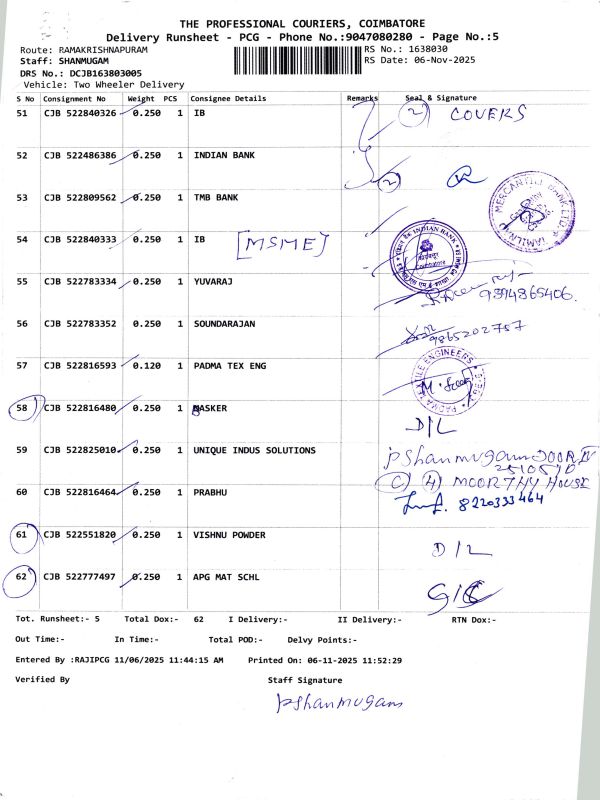 THE PROFESSIONAL COURIERS, COIMBATORE
Delivery Runsheet - PCG - Phone No.:9047080280 - Page No.:5
Route: RAMAKRISHNAPURAM RS No.: 1638030
Staff: SHANMUGAM RS Date: 06-Nov-2025
DRS No.: DCJB163803005
Vehicle: Two Wheeler Delivery
S No Consignment No Weight PCS Consignee Details Remarks Seal & Signature
51 CJB 522840326 0.250 1 IB (2) COVERS
52 CJB 522486386 0.250 1 INDIAN BANK (2)
53 CJB 522809562 0.250 1 TMB BANK
54 CJB 522840333 0.250 1 IB [MSME]
55 CJB 522783334 0.250 1 YUVARAJ
9394865406.
56 CJB 522783352 0.250 1 SOUNDARAJAN 9865202757
57 CJB 522816593 0.120 1 PADMA TEX ENG
58 CJB 522816480 0.250 1 BASKER
D/L
59 CJB 522825010 0.250 1 UNIQUE INDUS SOLUTIONS pshanmugam DOOR IV
(C) (4) MOORTHY HOUSE
60 CJB 522816464 0.250 1 PRABHU 8220333464
61 CJB 522551820 0.250 1 VISHNU POWDER
D/L
62 CJB 522777497 0.250 1 APG MAT SCHL
Tot. Runsheet:- 5 Total Dox:- 62 I Delivery:- II Delivery:- RTN Dox:-
Out Time:- In Time:- Total POD:- Delvy Points:-
Entered By :RAJIPCG 11/06/2025 11:44:15 AM Printed On: 06-11-2025 11:52:29
Verified By Staff Signature
pshanmugam